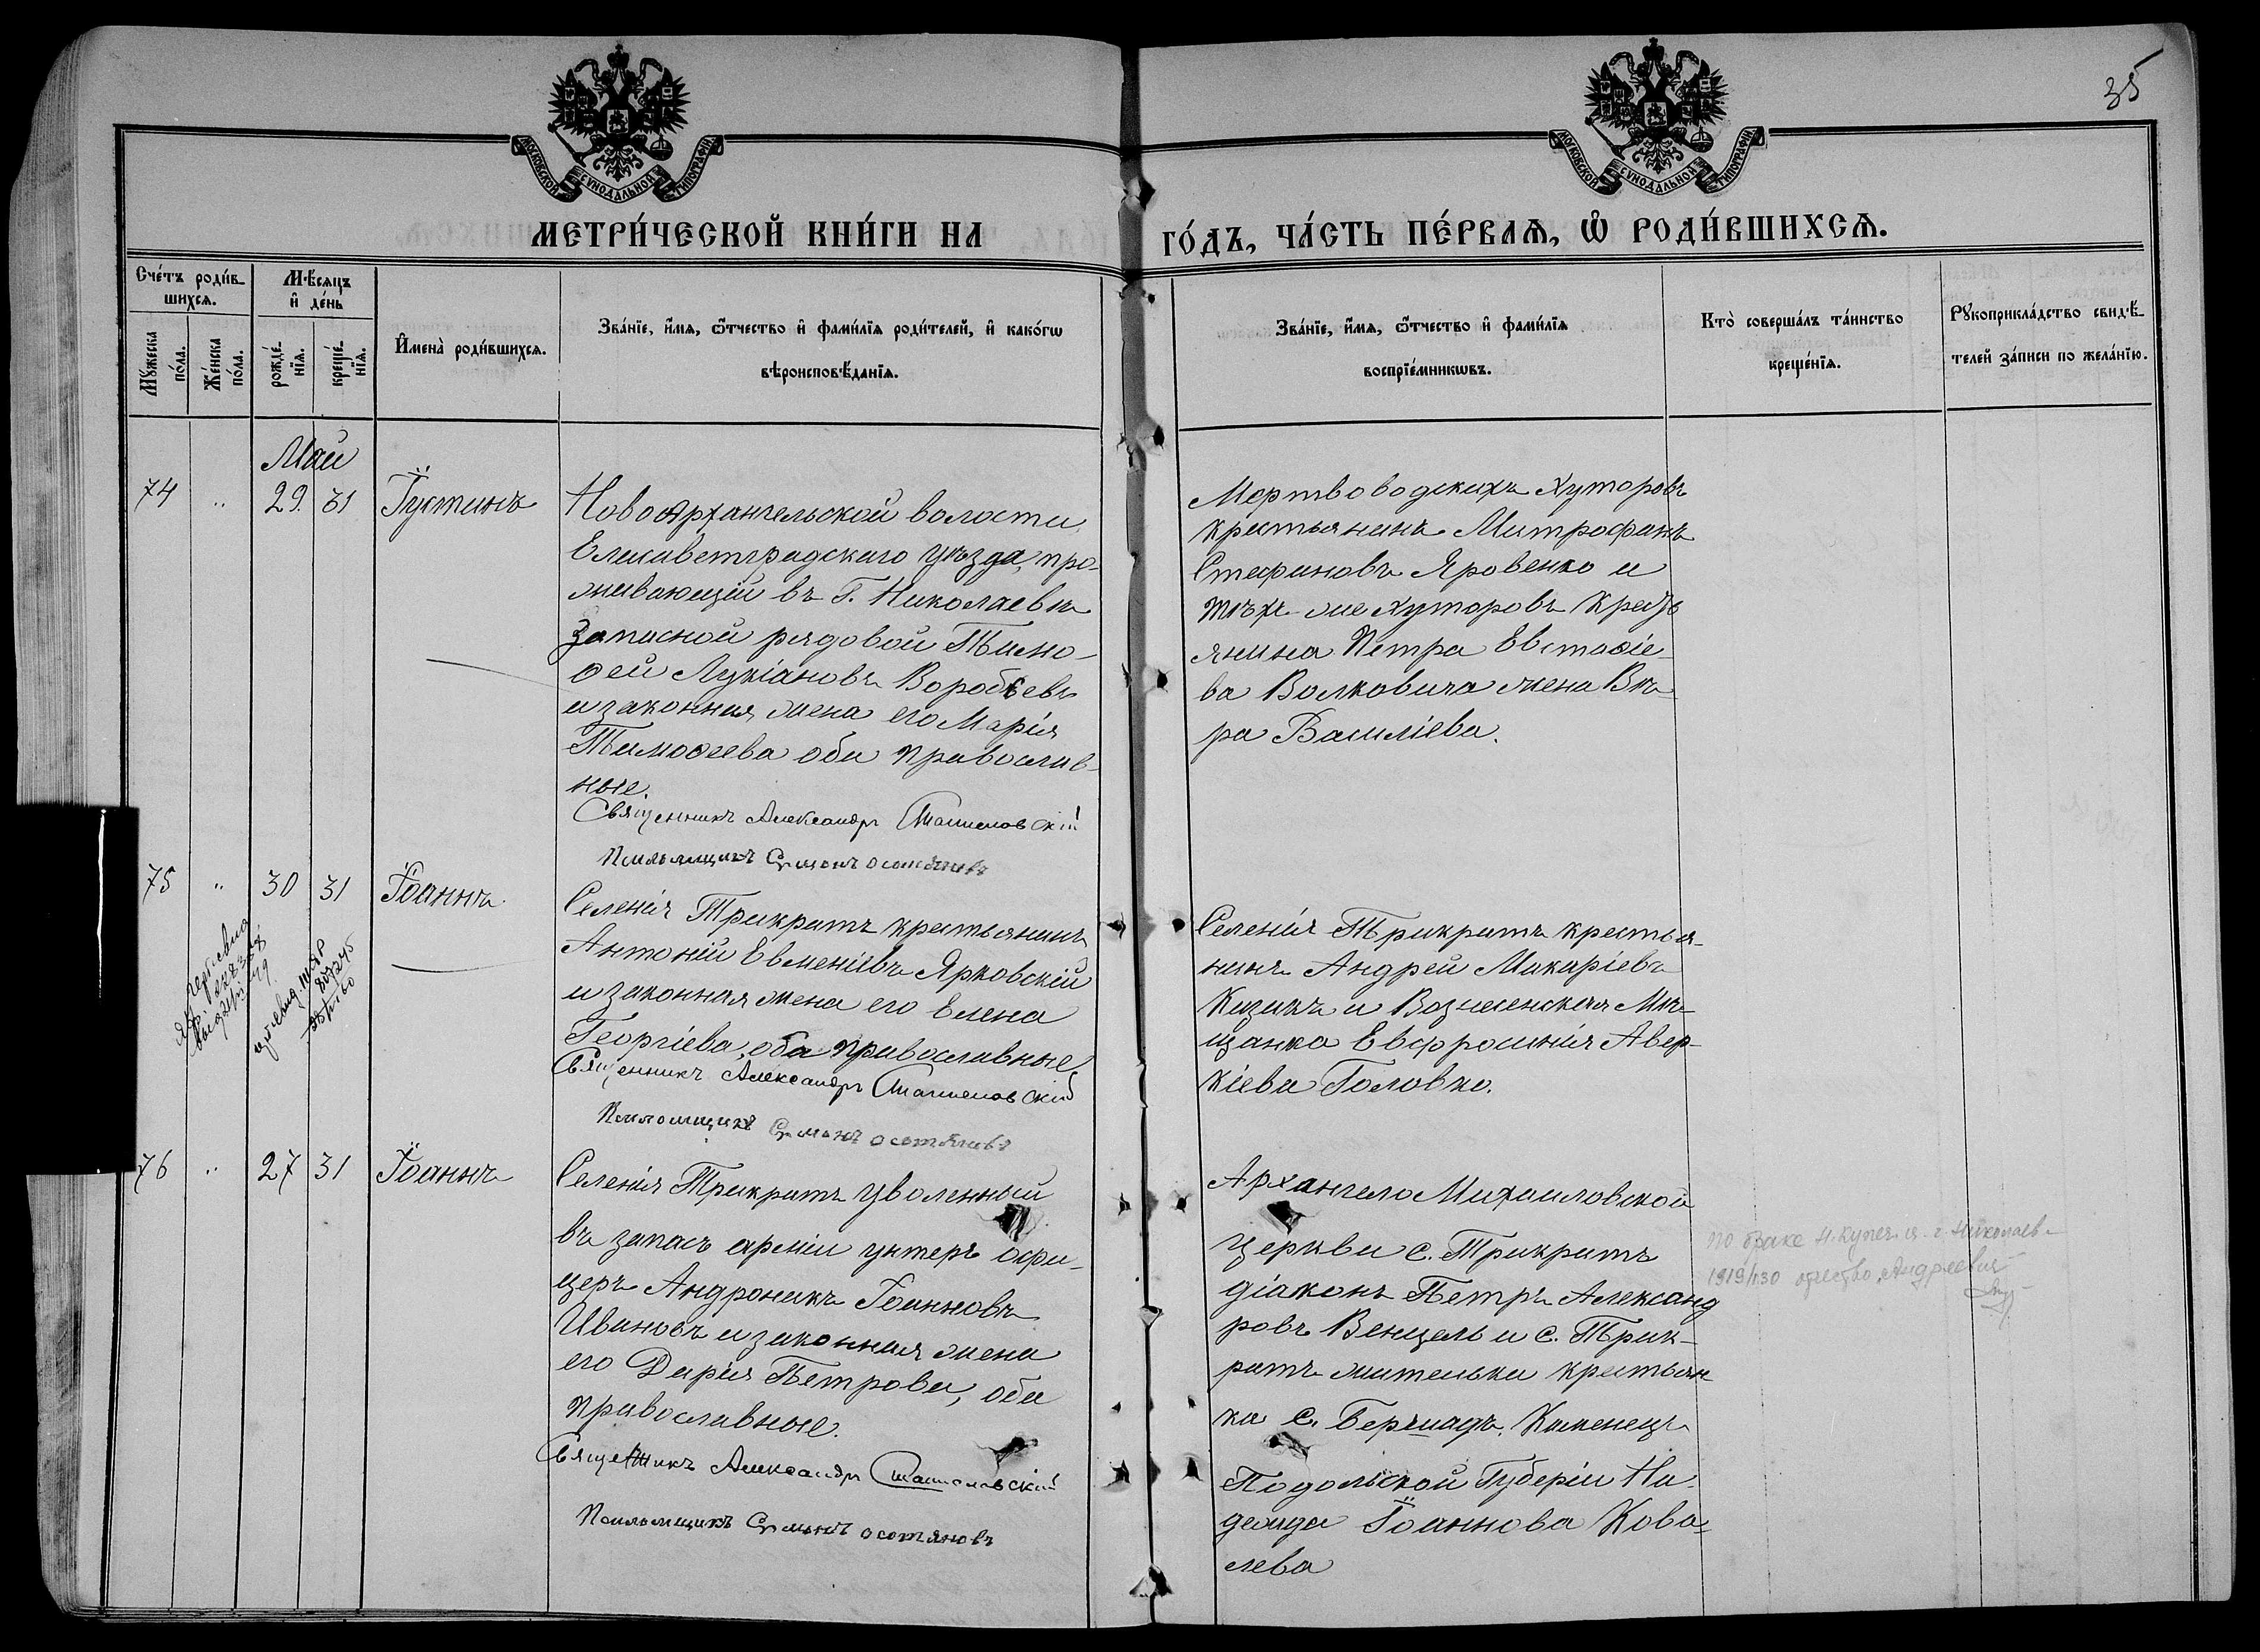 35
МОСКОВСКОЙ СѴНОДАЛЬНОЙ ТИПОГРАФІИ
МОСКОВСКОЙ СѴНОДАЛЬНОЙ ТИПОГРАФІИ
МЕТРИ́ЧЕСКОЙ КНИ́ГИ НА ГО́ДЪ, ЧА́СТЬ ПЕ́РВАѦ, Ѡ҆ РОДИ́ВШИХСѦ.
Сче́тъ роди́в-
шихсѧ.
Мѣ́сѧцъ
и҆ де́нь
Мꙋ́жеска
по́ла.
Же́нска
по́ла.
рожде́-
нїѧ.
креще́-
нїѧ.
И҆мена̀ роди́вшихсѧ.
Зва́нїе, и҆́мѧ, ѻ҆́тчество и҆ фами́лїѧ роди́телей, и҆ како́гѡ
вѣроисповѣ́данїѧ.
Зва́нїе, и҆́мѧ, ѻ҆́тчество и҆ фами́лїѧ
воспрїе́мникѡвъ.
Кто̀ соверша́лъ та́инство
креще́нїѧ.
Рꙋкоприкла́дство свидѣ́-
телей за́писи по жела́нїю.
Май
74 " 29. 31 Іустинъ
Новоархангельской волости
Елисаветградскаго уѣзда, про-
живающій въ г. Николаевѣ
Запасной рядовой Тимо-
ѳей Лукіановъ Воробьевъ
и законная жена его Марія
Тимоѳеева оба православ-
ные.
Священникъ Александръ
Псаломщикъ
Мертвоводскихъ Хуторовъ
крестьянинъ Митрофанъ
Стефановъ Яровенко и
тѣхъ-же Хуторовъ Крест
янина Петра Евстаѳіе-
ва Волковича жена Вѣ-
ра Василіева.
75 " 30 31 Іоаннъ
Селенія Трикратъ крестьянинъ
Антоній Евменіевъ Ярковскій
и законная жена его Елена
Георгіева, оба православные
Священникъ Александръ
Псаломщикъ
Селенія Трикратъ крестья-
нинъ Андрей Макаріевъ
Казакъ и Вознесенская Мѣ-
щанка Евфросинія Авер-
кіева Головко.
76 " 27 31 Іоаннъ
Селенія Трикратъ уволенный
въ запасъ арміи унтеръ офи-
церъ Андроникъ Іоанновъ
Ивановъ и законная жена
его Дарія Петрова, оба
православные.
Священникъ Александръ
Псаломщикъ
Архангело Михаиловской
Церкви с. Трикратъ
діаконъ Петръ Александ
ровъ Венцель и с. Трик-
ратъ жителька крестьян
ка с. Бершадъ, Каменецъ
Подольской Губеріи На-
дежда Іоаннова Кова-
лева
по браке
1919/130 отчество Андреевич